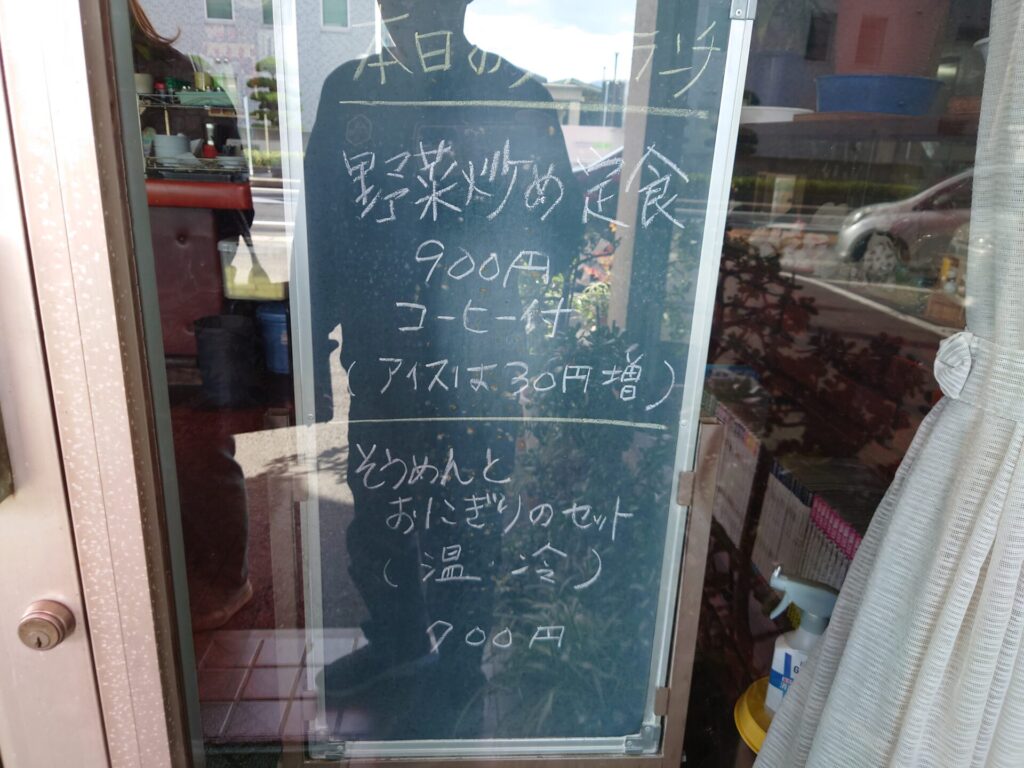 本日の ランチ
野菜炒め定食
900円
コーヒー付
(アイスは30円増)
そうめんと
おにぎりのセット
(温・冷)
900円